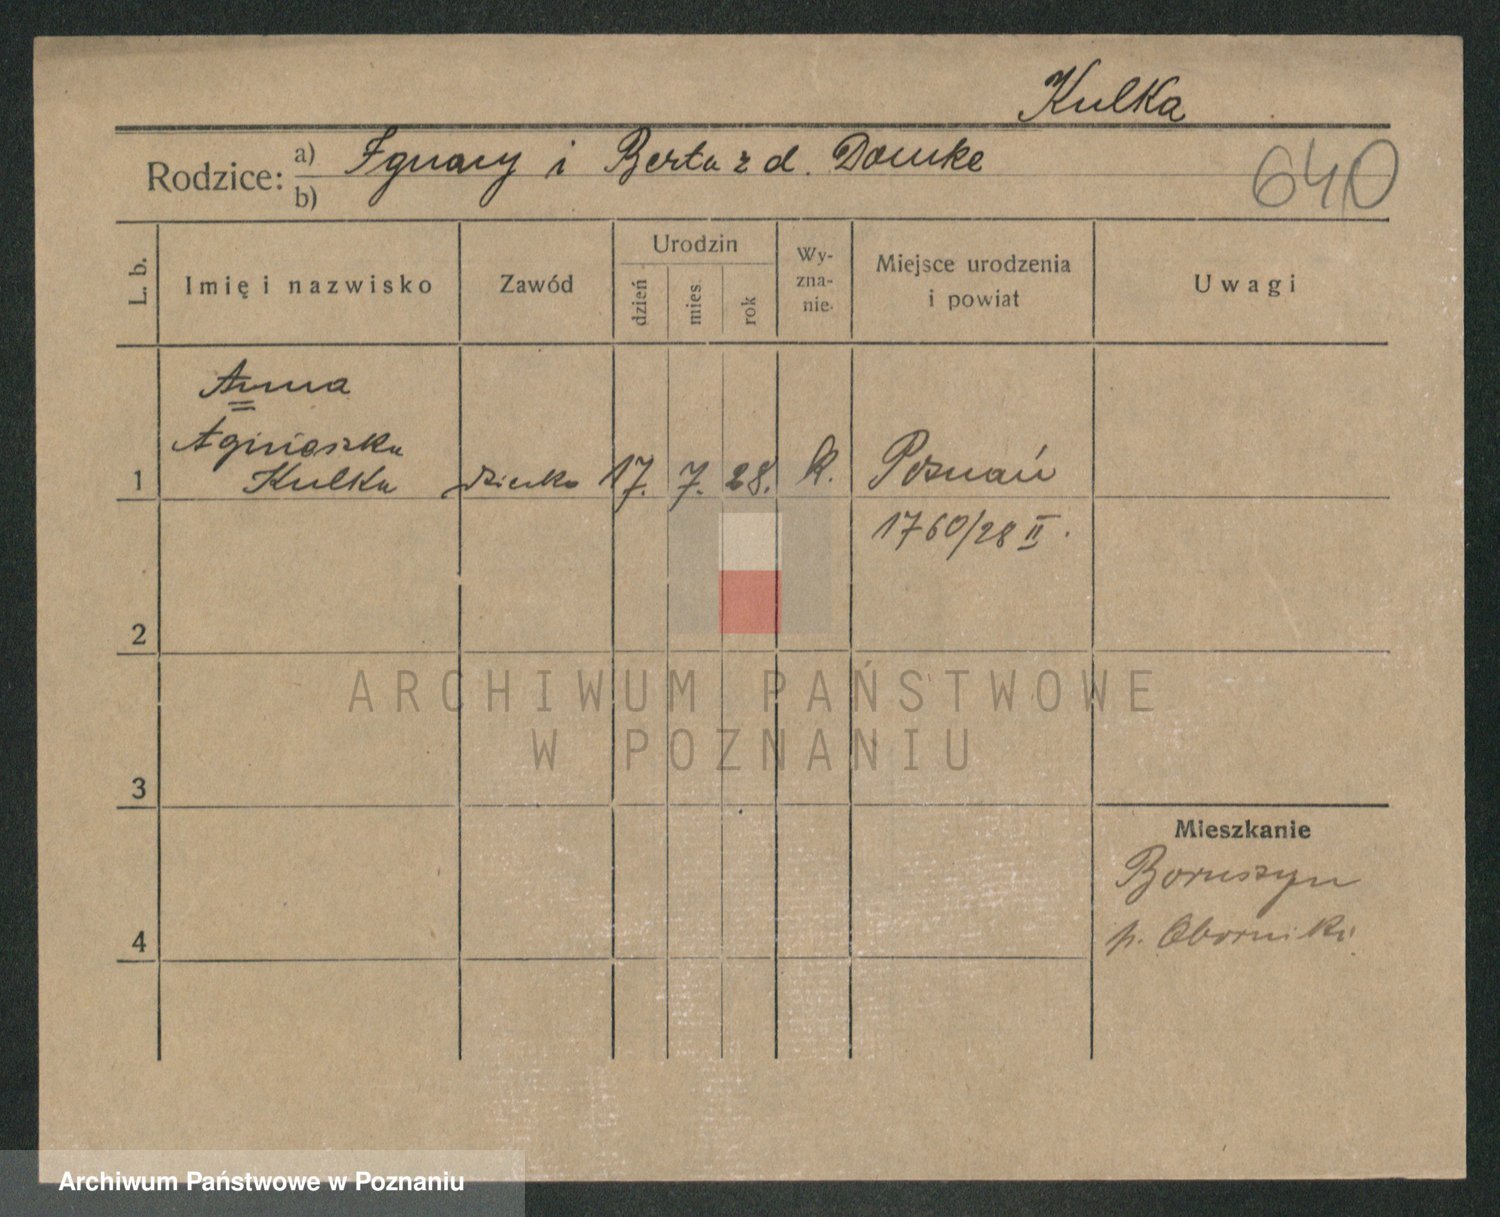 Kulka
Rodzice: a) Ignacy i Berta z d. Domke
b)
640
L. b.
Imię i nazwisko
Zawód
Urodzin
dzień
mies.
rok
Wy-
zna-
nie.
Miejsce urodzenia
i powiat
Uwagi
Anna
Agnieszka
1 Kulka dziecko 17. 7. 28. k. Poznań
1760/28 II.
2
3
4
Mieszkanie
Boruszyn
p. Oborniki
ARCHIWUM PAŃSTWOWE
W POZNANIU
Archiwum Państwowe w Poznaniu